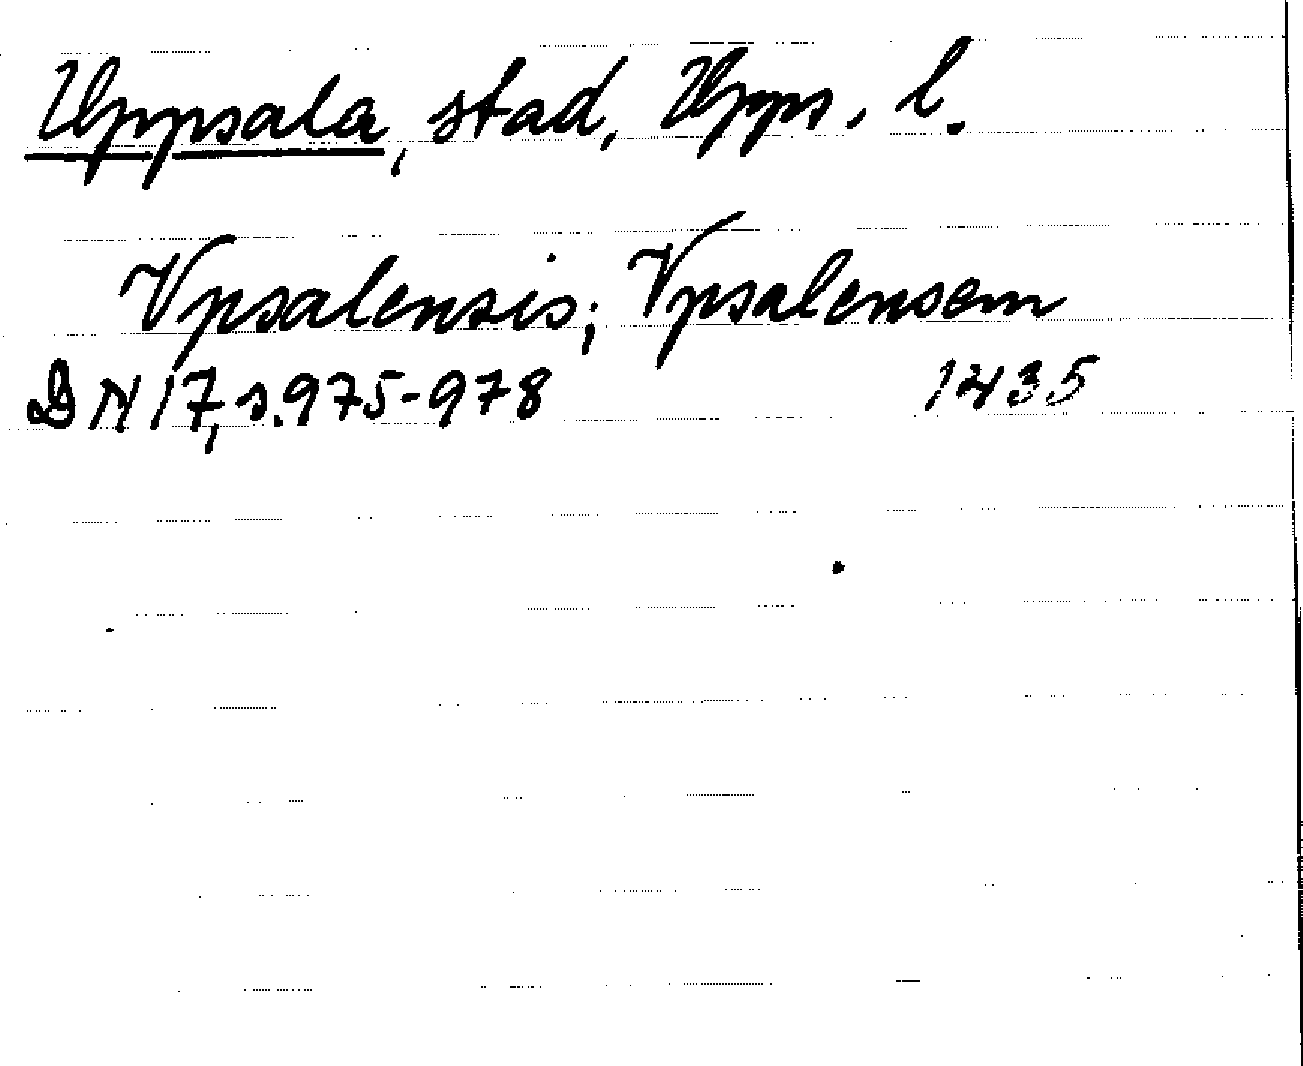 Uppsala, stad, Upps. l.
Vpsalensis; Vpsalensem
DN 17, s. 975-978 1435